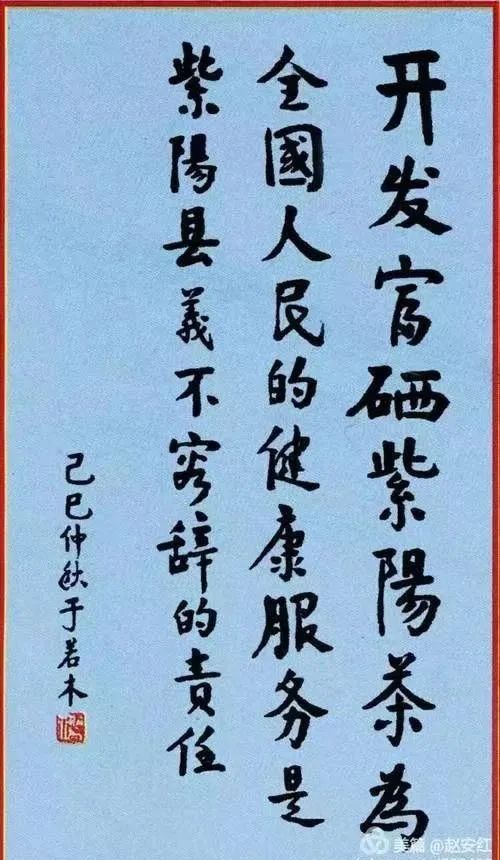 开发富硒紫陽茶為
全國人民的健康服务是
紫陽县義不容辞的責任
己巳仲秋于若木
美篇 @赵安红